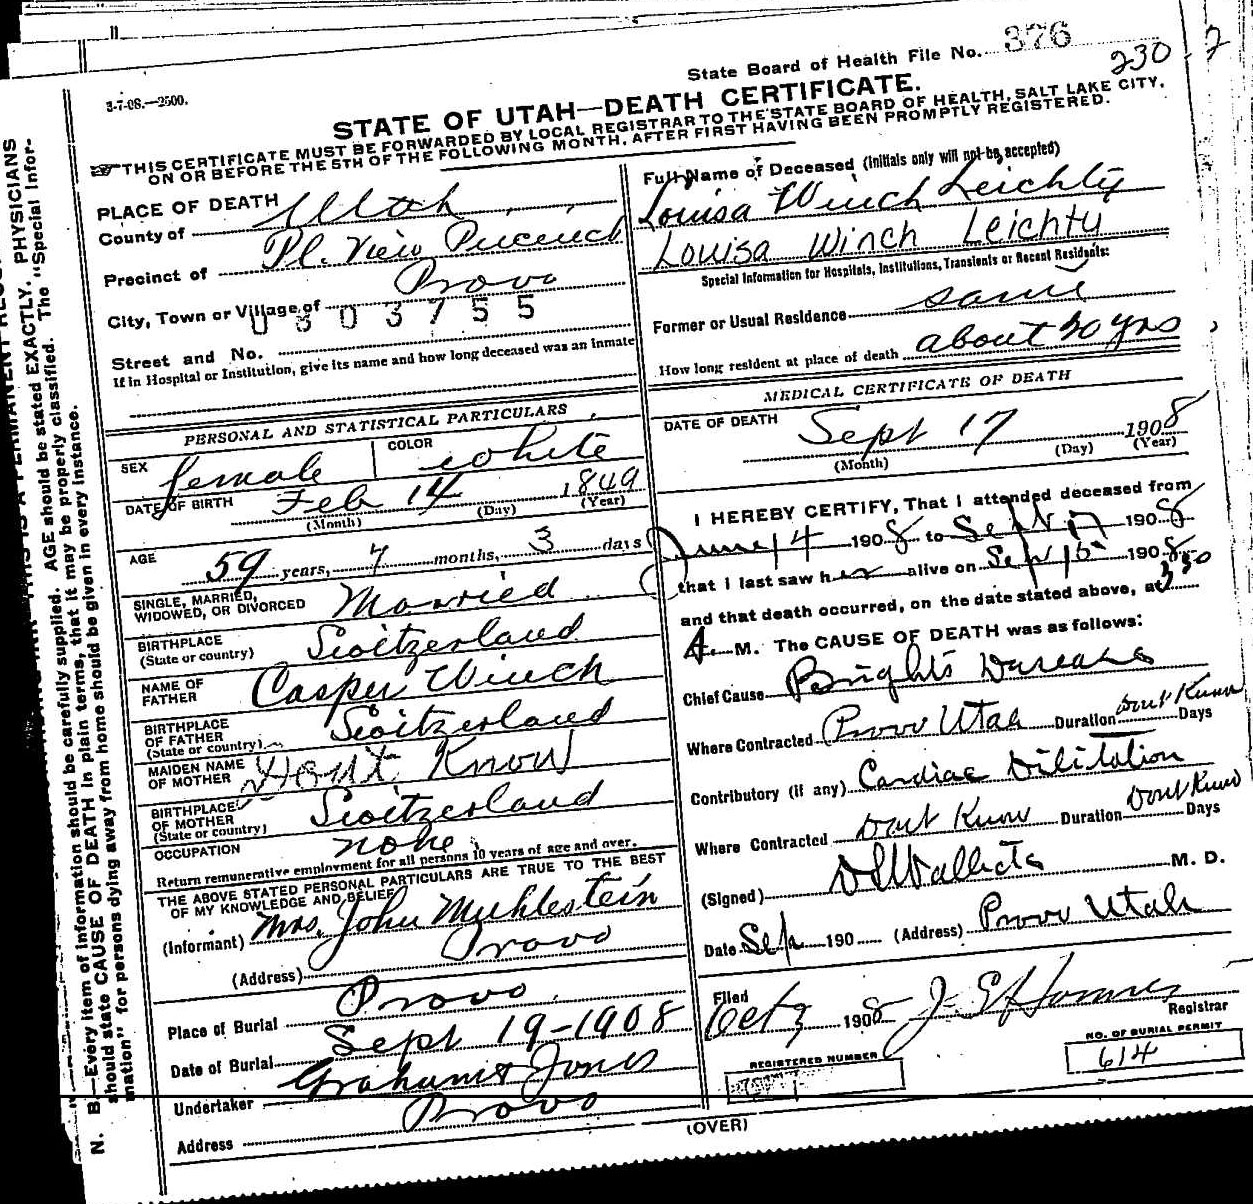 State Board of Health File No. 376
230 - 2
3-7-08.—2500.
STATE OF UTAH—DEATH CERTIFICATE.
THIS CERTIFICATE MUST BE FORWARDED BY LOCAL REGISTRAR TO THE STATE BOARD OF HEALTH, SALT LAKE CITY,
ON OR BEFORE THE 5TH OF THE FOLLOWING MONTH, AFTER FIRST HAVING BEEN PROMPTLY REGISTERED.
PLACE OF DEATH
County of Utah
Precinct of Pl. View Precinct
City, Town or Village of Provo
0303755
Street and No.
If in Hospital or Institution, give its name and how long deceased was an inmate
PERSONAL AND STATISTICAL PARTICULARS
SEX female COLOR white
DATE OF BIRTH Feb 14 1849
(Month) (Day) (Year)
AGE 59 years, 7 months, 3 days
SINGLE, MARRIED,
WIDOWED, OR DIVORCED Married
BIRTHPLACE
(State or country) Switzerland
NAME OF
FATHER Casper Winch
BIRTHPLACE
OF FATHER
(State or country) Switzerland
MAIDEN NAME
OF MOTHER Dont Know
BIRTHPLACE
OF MOTHER
(State or country) Switzerland
OCCUPATION none
Return remunerative employment for all persons 10 years of age and over.
THE ABOVE STATED PERSONAL PARTICULARS ARE TRUE TO THE BEST
OF MY KNOWLEDGE AND BELIEF
(Informant) Mrs. John Muhlestein
(Address) Provo
Place of Burial Provo
Date of Burial Sept 19-1908
Undertaker Graham & Jones
Address Provo
Full Name of Deceased (Initials only will not be accepted)
Louisa Winch Leichty
Louisa Winch Leichty
Special Information for Hospitals, Institutions, Transients or Recent Residents:
Former or Usual Residence same
How long resident at place of death about 30 yrs
MEDICAL CERTIFICATE OF DEATH
DATE OF DEATH Sept 17 1908
(Month) (Day) (Year)
I HEREBY CERTIFY, That I attended deceased from
June 14 1908 to Sept 17 1908
that I last saw her alive on Sep 15 1908
and that death occurred, on the date stated above, at 3 30
A. M. The CAUSE OF DEATH was as follows:
Chief Cause Brights Disease
Where Contracted Provo Utah Duration Dont Know Days
Contributory (if any) Cardiac Dilitation
Where Contracted Dont Know Duration Dont Know Days
(Signed) M. D.
Date Sep 190 (Address) Provo Utah
Filed
Oct 3 1908 Registrar
REGISTERED NUMBER
NO. OF BURIAL PERMIT
614
(OVER)
N. B.—Every item of information should be carefully supplied. AGE should be stated EXACTLY. PHYSICIANS
should state CAUSE OF DEATH in plain terms, that it may be properly classified. The "Special Infor-
mation" for persons dying away from home should be given in every instance.